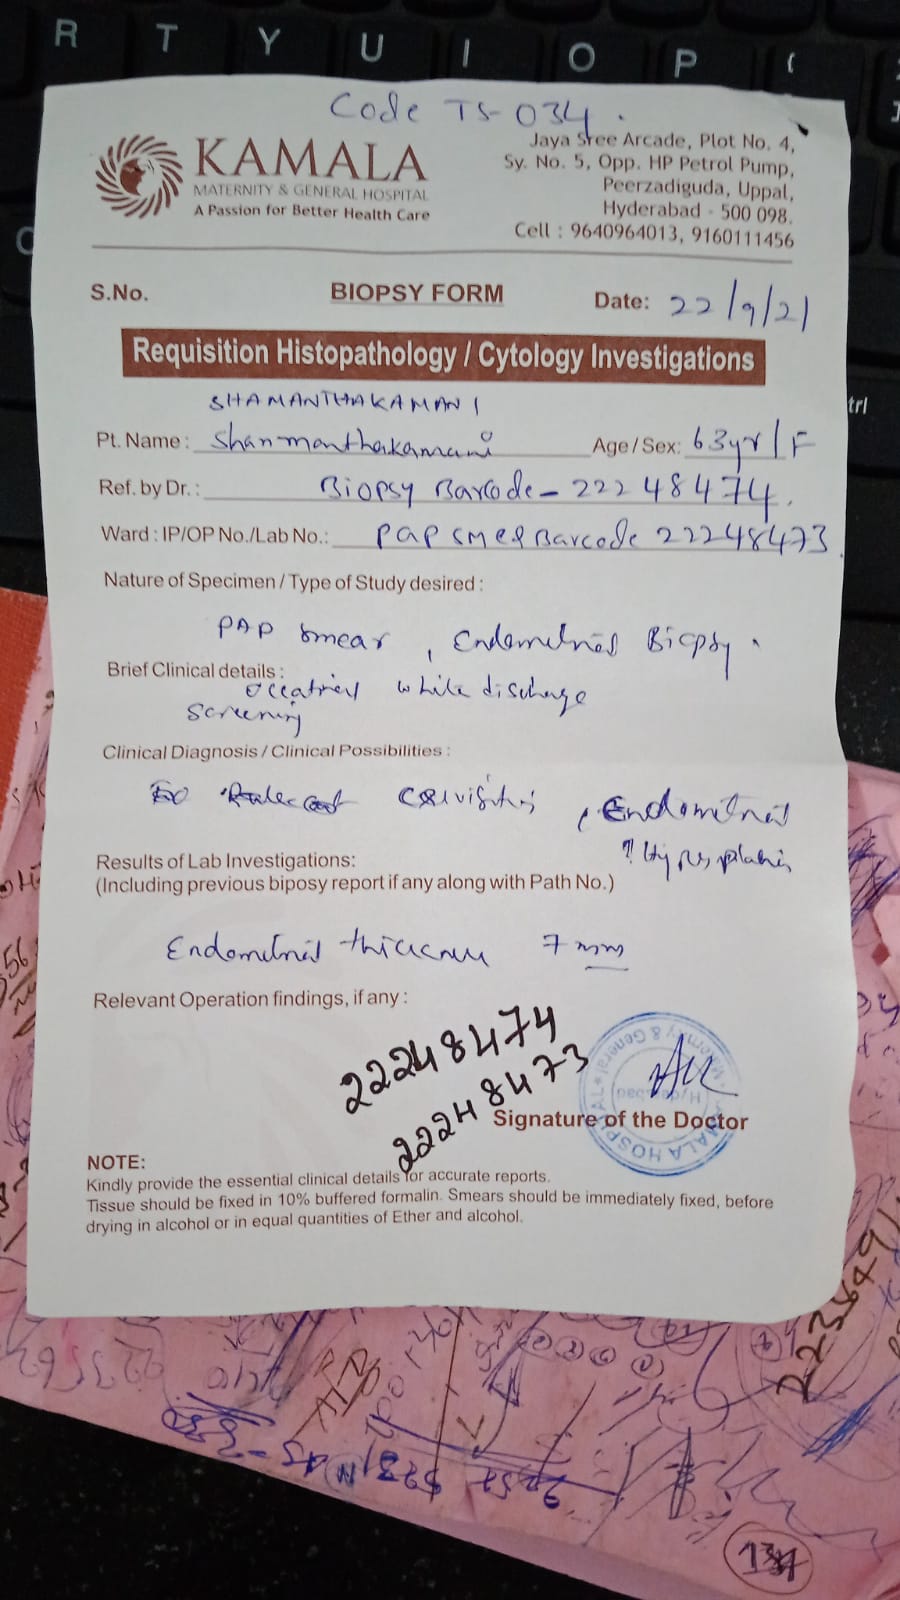 R T Y U I O P
Code TS-034.
KAMALA
MATERNITY & GENERAL HOSPITAL
A Passion for Better Health Care
Jaya Sree Arcade, Plot No. 4,
Sy. No. 5, Opp. HP Petrol Pump,
Peerzadiguda, Uppal,
Hyderabad - 500 098.
Cell : 9640964013, 9160111456
S.No. BIOPSY FORM Date: 22/9/21
Requisition Histopathology / Cytology Investigations
trl
SHAMANTHAKAMANI
Pt. Name : Shanmanthakamani Age / Sex: 63yr/F
Ref. by Dr. : Biopsy Barcode - 22248474.
Ward : IP/OP No./Lab No.: PAP SMER Barcode 22248473.
Nature of Specimen / Type of Study desired :
PAP smear, Endometrial Biopsy.
Brief Clinical details :
white discharge
screening
Clinical Diagnosis / Clinical Possibilities :
cervisitis, Endometrial
? Hyperplasia
Results of Lab Investigations:
(Including previous biposy report if any along with Path No.)
Endometrial thickness 7 mm
Relevant Operation findings, if any :
22248474
22248473
Signature of the Doctor
NOTE:
Kindly provide the essential clinical details for accurate reports.
Tissue should be fixed in 10% buffered formalin. Smears should be immediately fixed, before
drying in alcohol or in equal quantities of Ether and alcohol.